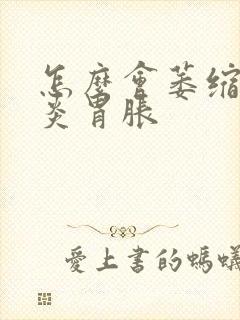 怎麼會萎缩
炎胃脹
愛上書的螞蟻